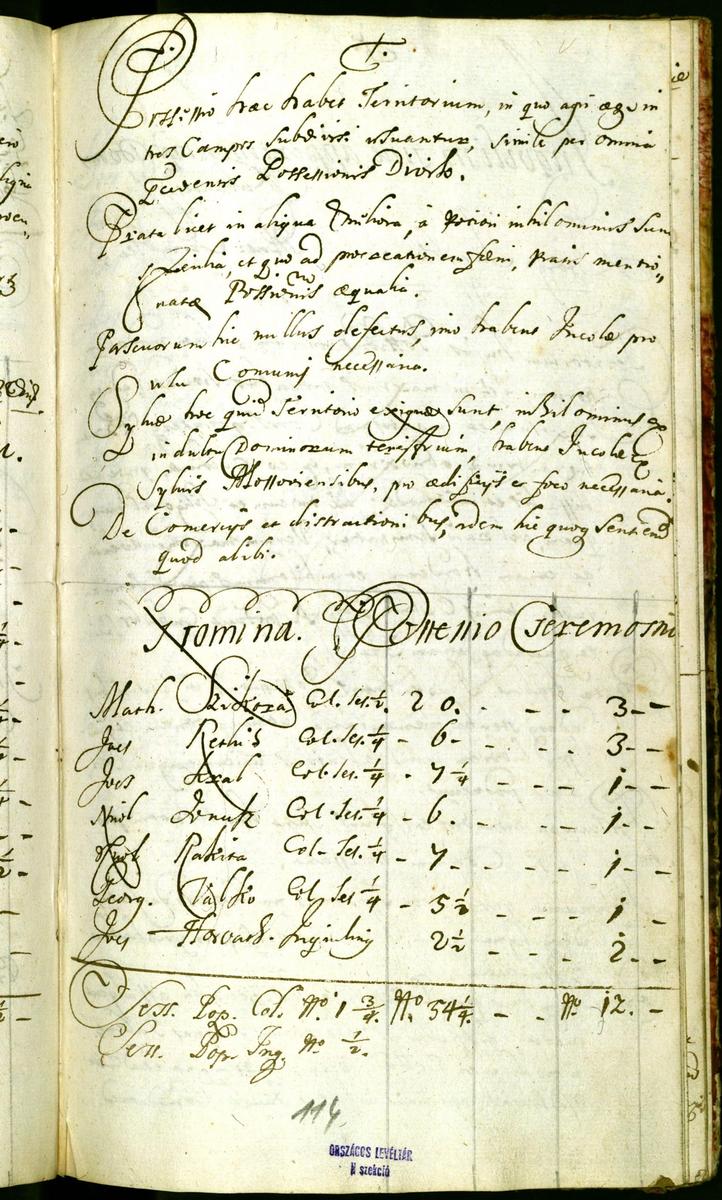 Possessio haec habet Territorium, in quo agri aeque in
tres Campos subdivisi usuantur, simile per omnia
Possessionis Divisò.
Prata licet in aliqua nihilominus sunt
et quo ad procreationem faeni, Pratis mentio„
natae Possionis aequalia.
Pascuorum hic nullus defectus, imo habent Incolae pro
usu Comuni necessaria.
Sylvae hoc quid Territorio exiguae sunt, nihilominus ex
indultu Dominorum terestrium, habent Incolae ex
Sylvis Mossoviensibus, pro aedificijs et foco necessaria.
De Comercijs et distractionibus, idem hic quoq sentiend
quod alibi.
Nomina. Possessio Geremosni
Math. Sikora Col. ses. ½. 20. - - - 3 - -
Joes Col. ses. ¼ - 6 - - - - 3 - -
Joes Kral Col. ses. ¼ - 7 ¼ - - - 1 - -
Col. ses. ¼ - 6. - - - 1 - -
Rakita Col. ses. ¼ - 7 - - - 1 - -
Georg. Col. ses. ¼ - 5 ½ - - - 1 -
Joes Horvath. Inquilinq 2 ½ - - - 2 -
Sess. Pop. Col. No. 1 ¾. No. 54 ¼. - - No. 12. -
Sess. Pop. Inq. No. ½.
114.
ORSZÁGOS LEVÉLTÁR
N szekció